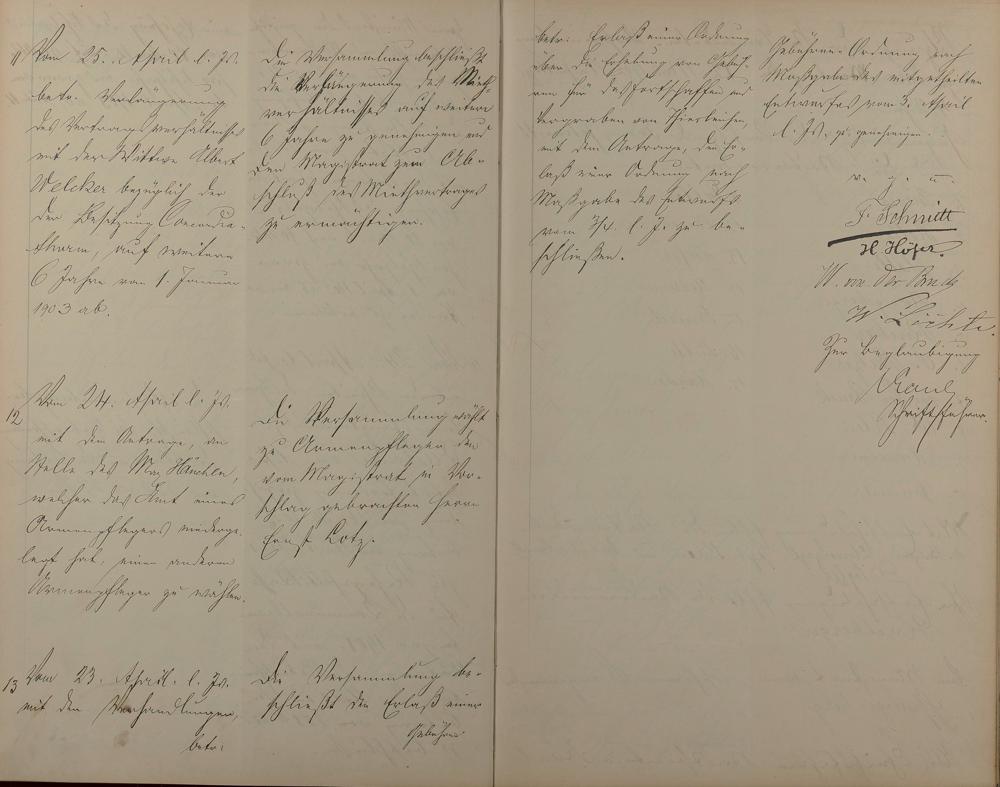 11
Vom 25. April l. Js.
betr. Verlängerung
des Vertragsverhältnisses
mit der Wittwe Albert
Welcker bezüglich der
der Besitzung Concordia-
thurm, auf weitere
6 Jahre vom 1. Januar
1903 ab.
Die Versammlung beschließt
die Verlängerung des Mieth-
verhältnisses auf weitere
6 Jahre zu genehmigen und
den Magistrat zum Ab-
schluß des Miethvertrages
zu ermächtigen.
12
Vom 24. April l. Js.
mit dem Antrage, an
Stelle des Max
welcher das Amt eines
Armenpflegers niederge-
legt hat, einen anderen
Armenpfleger zu wählen.
Die Versammlung wählt
zu Armenpfleger den
vom Magistrat in Vor-
schlag gebrachten Herrn
Ernst Lotz.
13
Vom 23. April l. Js.
mit den Verhandlungen,
betr:
Die Versammlung be-
schließt den Erlaß einer
Gebühren
betr. Erlaß einer Ordnung
über die Erhebung von Gebüh-
ren für das Fortschaffen und
Vergraben von Thierleichen,
mit dem Antrage, den Er-
laß einer Ordnung nach
Maßgabe des Entwurfs
vom 3/4. l. J. zu be-
schließen.
Gebühren-Ordnung nach
Maßgabe des mitgetheilten
Entwurfes vom 3. April
l. Js. zu genehmigen.
v. g. u.
F. Schmitt
H. Höfer.
W. von der
W.
Zur Beglaubigung
Schriftführer.